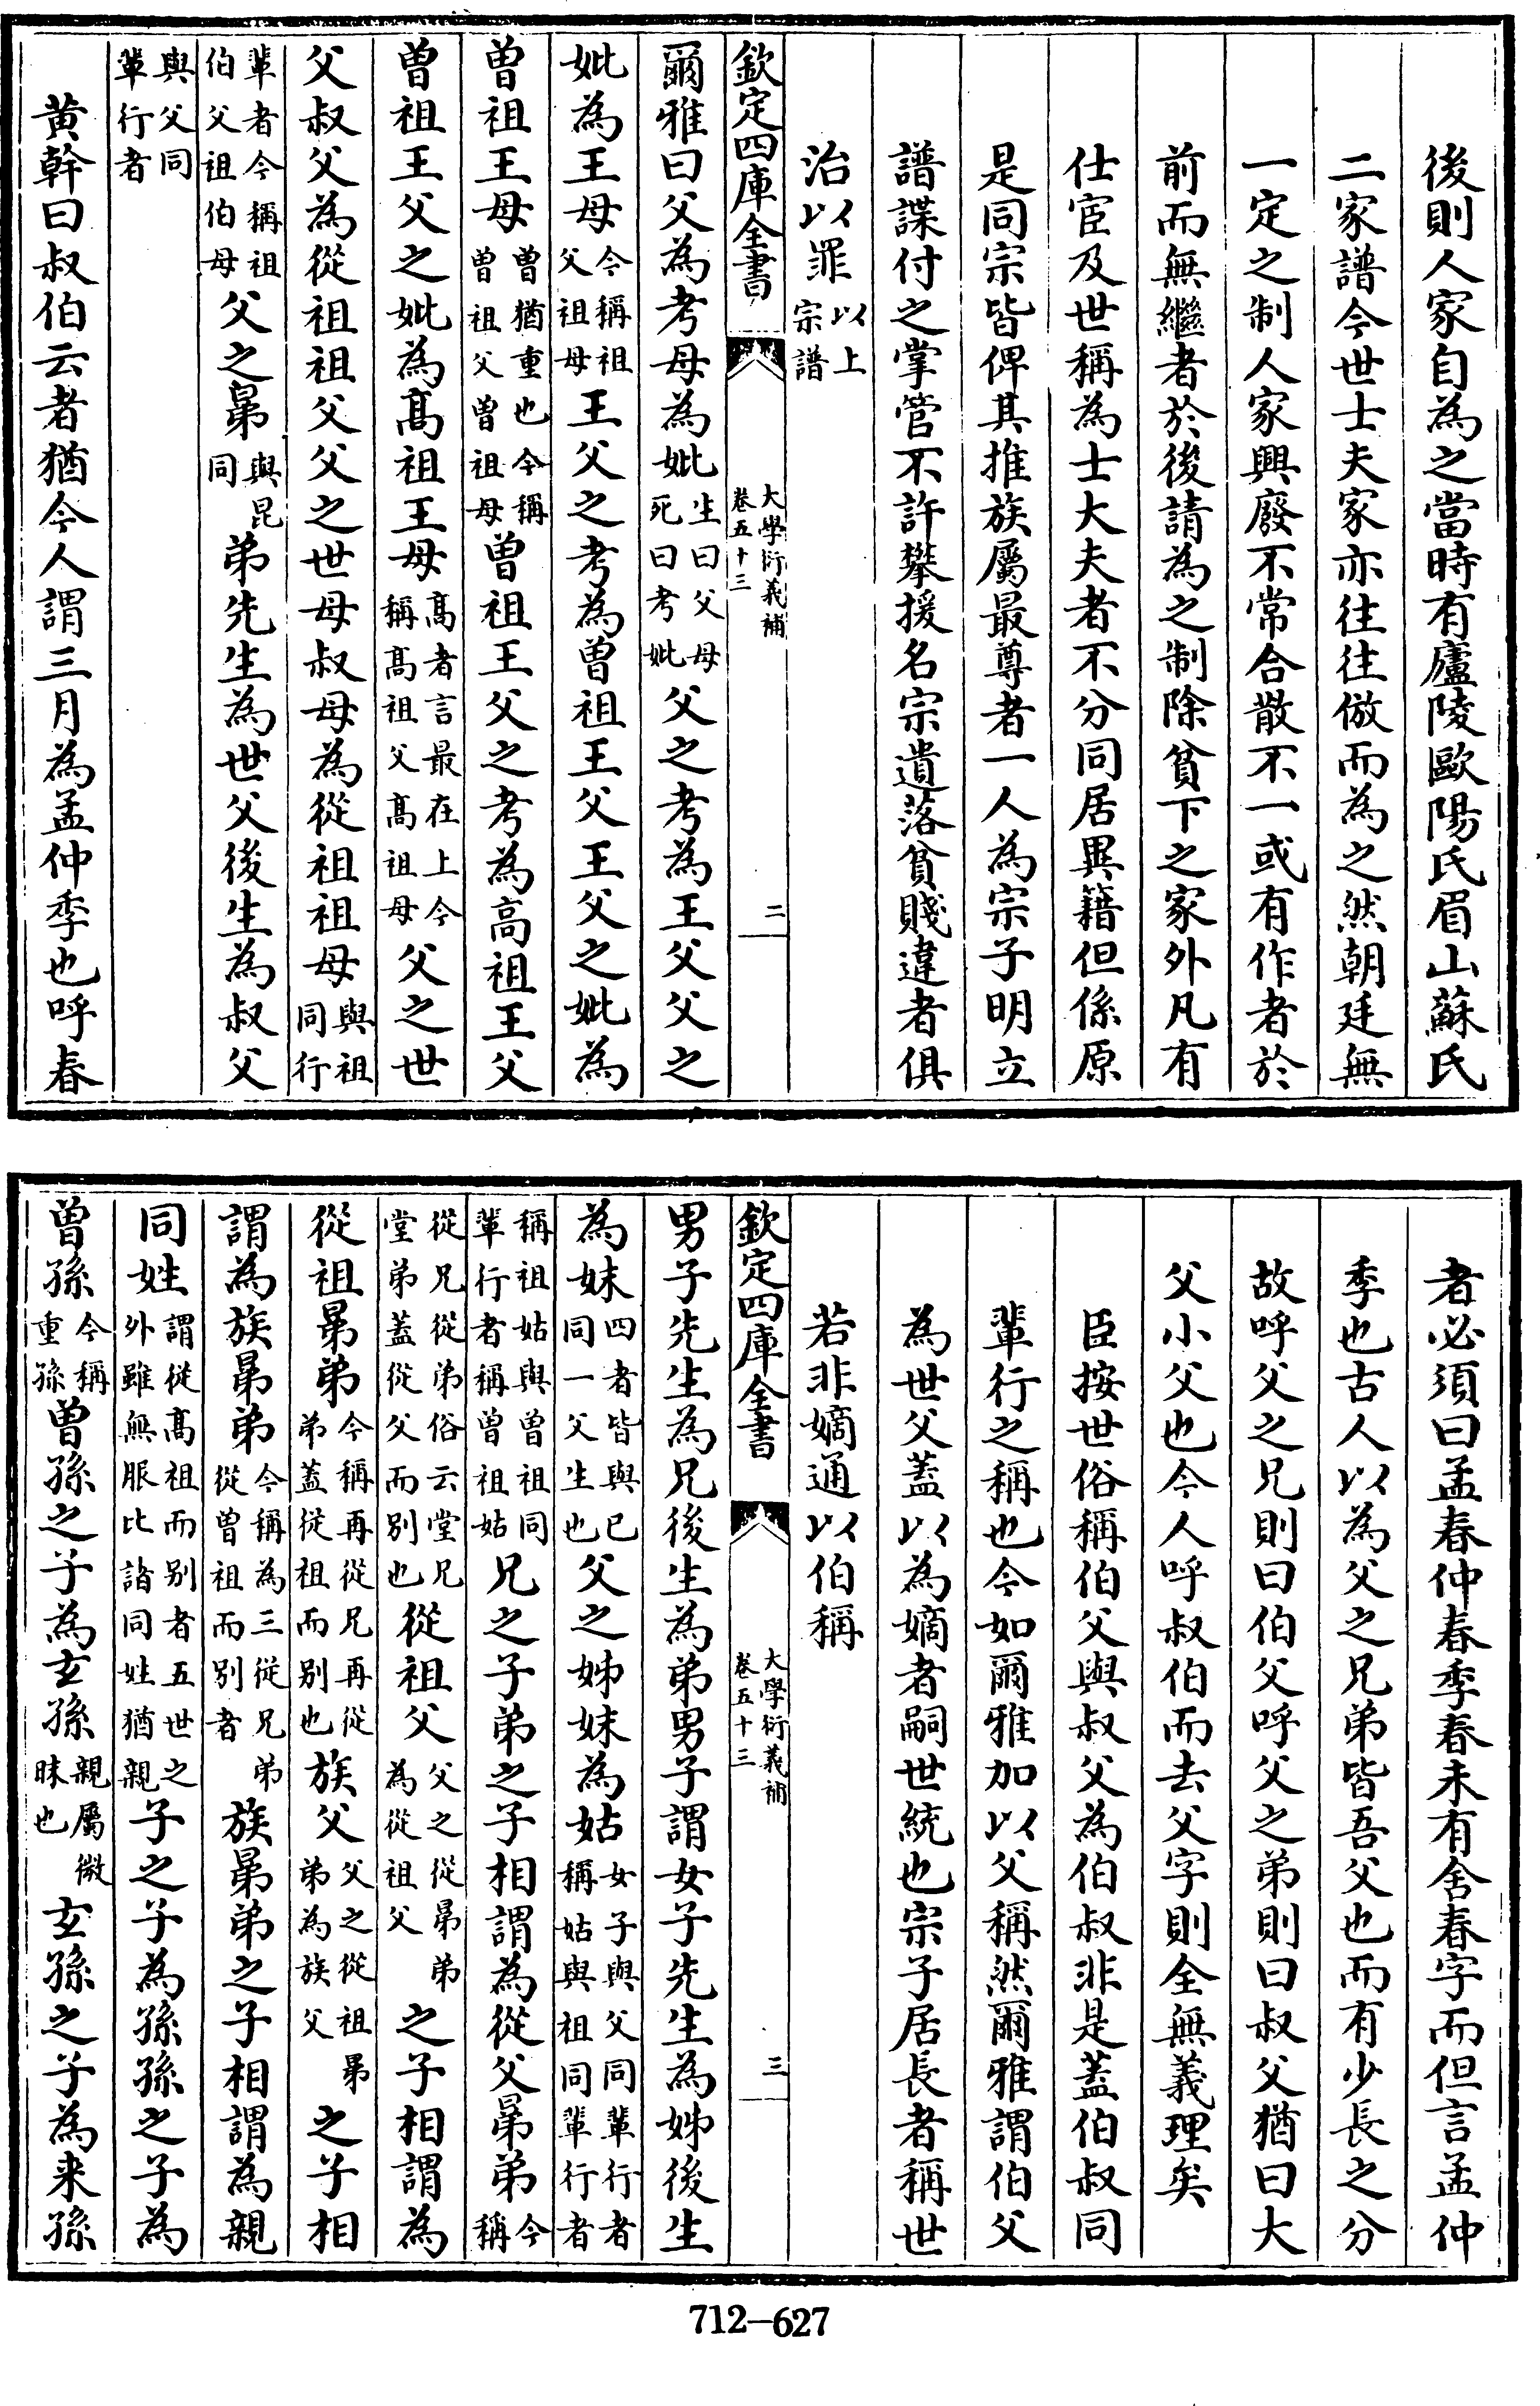 後則人家自為之當時有廬陵歐陽氏眉山蘇氏
二家譜今世士夫家亦往往倣而為之然朝廷無
一定之制人家興廢不常合散不一或有作者於
前而無繼者於後請為之制除貧下之家外凡有
仕宦及世稱為士大夫者不分同居異籍但係原
是同宗皆俾其推族屬最尊者一人為宗子明立
譜諜付之掌管不許攀援名宗遺落貧賤違者俱
治以罪以上宗譜
欽定四庫全書 大學衍義補卷五十三 二
爾雅曰父為考母為妣生曰父母死曰考妣父之考為王父父之
妣為王母今稱祖父祖母王父之考為曾祖王父王父之妣為
曾祖王母曾猶重也今稱曾祖父曾祖母曾祖王父之考為高祖王父
曾祖王父之妣為髙祖王母髙者言最在上今稱髙祖父髙祖母父之世
父叔父為從祖祖父父之世母叔母為從祖祖母與祖同行
輩者今稱祖伯父祖伯母父之晜與昆同弟先生為世父後生為叔父
與父同輩行者
黃幹曰叔伯云者猶今人謂三月為孟仲季也呼春
者必須曰孟春仲春季春未有舍春字而但言孟仲
季也古人以為父之兄弟皆吾父也而有少長之分
故呼父之兄則曰伯父呼父之弟則曰叔父猶曰大
父小父也今人呼叔伯而去父字則全無義理矣
臣按世俗稱伯父與叔父為伯叔非是蓋伯叔同
輩行之稱也今如爾雅加以父稱然爾雅謂伯父
為世父蓋以為嫡者嗣世統也宗子居長者稱世
若非嫡通以伯稱
欽定四庫全書 大學衍義補卷五十三 三
男子先生為兄後生為弟男子謂女子先生為姊後生
為妹四者皆與已同一父生也父之姊妹為姑女子與父同輩行者稱姑與祖同輩行者
稱祖姑與曾祖同輩行者稱曾祖姑兄之子弟之子相謂為從父晜弟今稱
從兄從弟俗云堂兄堂弟蓋從父而別也從祖父父之從晜弟為從祖父之子相謂為
從祖晜弟今稱再從兄再從弟蓋從祖而別也族父父之從祖晜弟為族父之子相
謂為族晜弟今稱為三從兄弟從曾祖而別者族晜弟之子相謂為親
同姓謂從髙祖而別者五世之外雖無服比諸同姓猶親子之子為孫孫之子為
曾孫今稱重孫曾孫之子為玄孫親屬微昧也玄孫之子為来孫
712-627